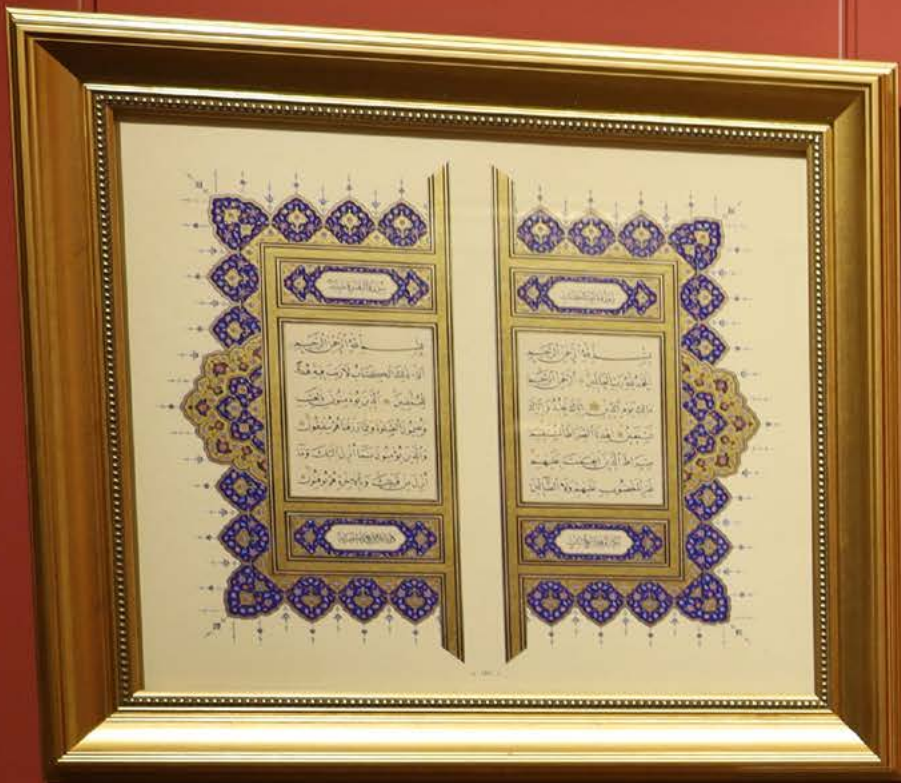 بسم الله الرحمن الرحيم
الحمد لله رب العالمين الرحمن الرحيم
مالك يوم الدين اياك نعبد واياك
نستعين اهدنا الصراط المستقيم
صراط الذين انعمت عليهم
غير المغضوب عليهم ولا الضالين
سورة البقرة
بسم الله الرحمن الرحيم
الم ذلك الكتاب لا ريب فيه هدى
للمتقين الذين يؤمنون بالغيب
ويقيمون الصلوة ومما رزقناهم ينفقون
والذين يؤمنون بما انزل اليك وما
انزل من قبلك وبالاخرة هم يوقنون